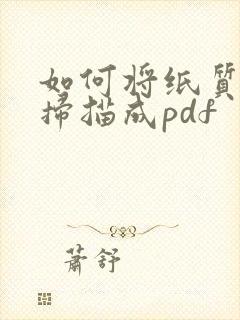 如何将纸质
扫描成pdf
萧舒